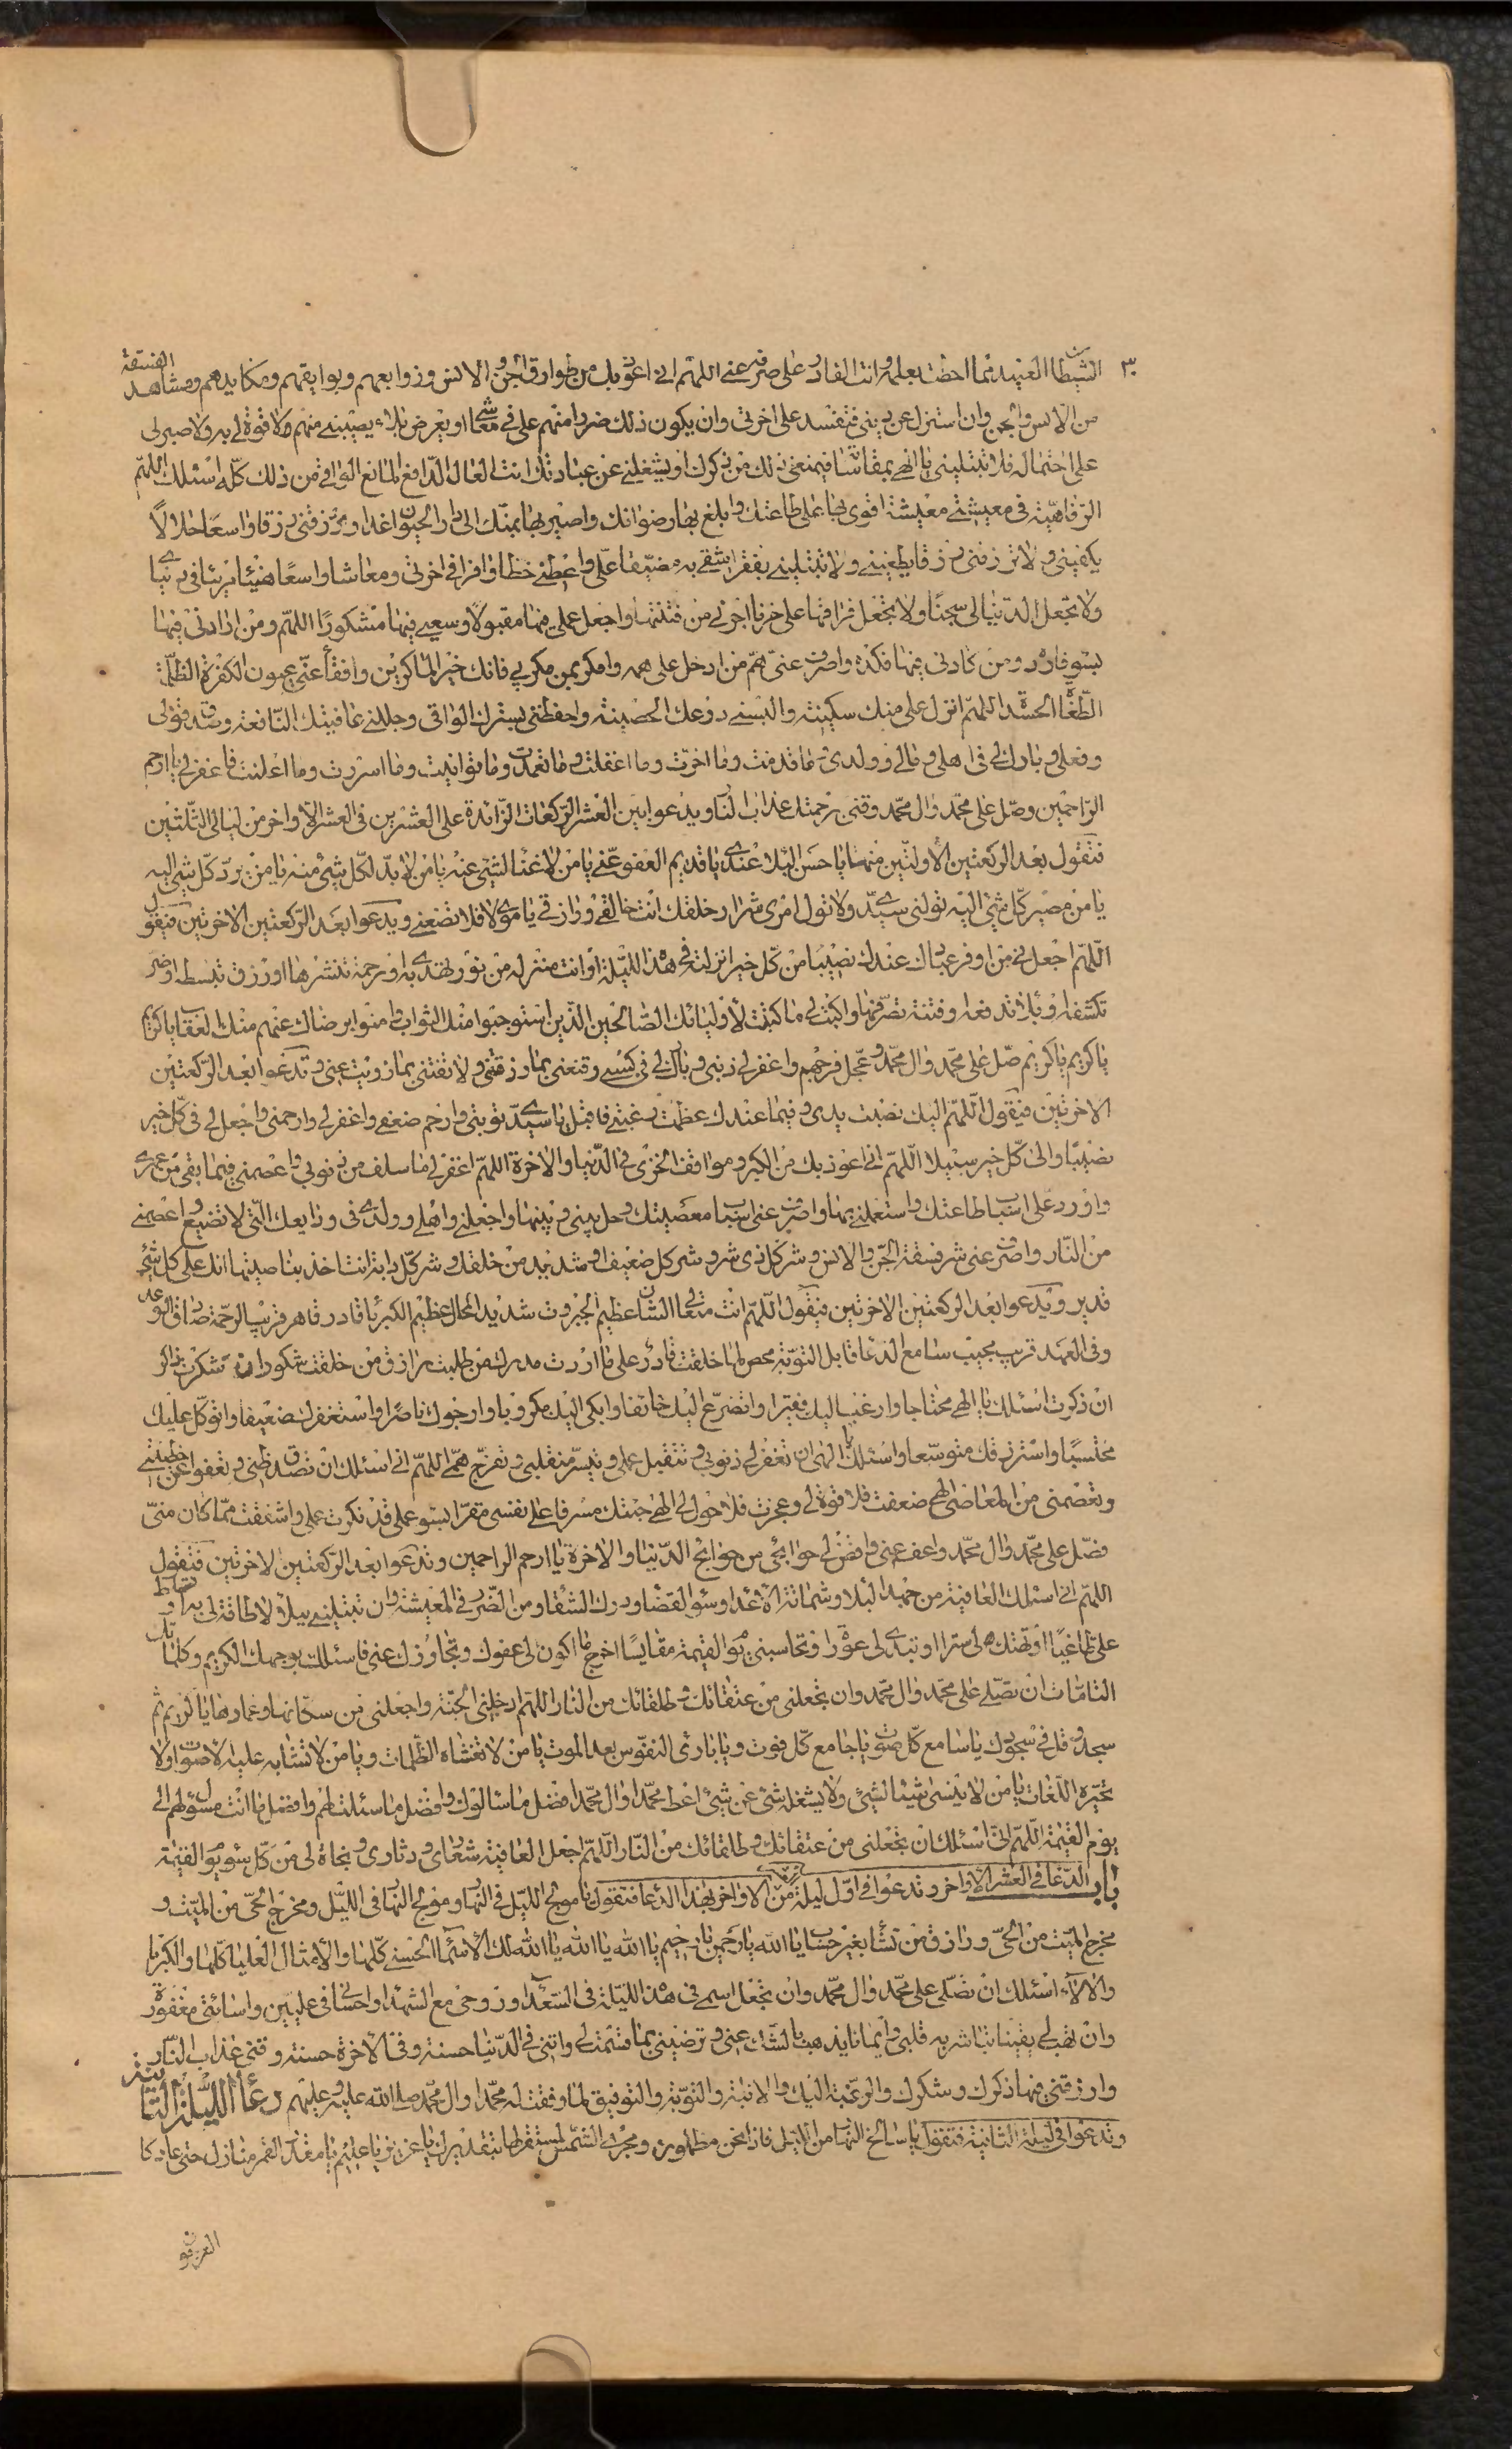 ٣٠
الشيطان العنيد مما احطت بعلمه وانت القادر على صرفه عني اللهم اني اعوذ بك من طوارق الجن والانس وزوابعهم وبوايقهم ومكايدهم ومشاهد الفسقة
من الانس والجن وان استنزل عن ديني فتفسد على اخرتي وان يكون ذلك ضررا منهم على في معاشي او يعرض بلاء يصيبني منهم ولا قوة لي به ولا صبر لي
على احتماله فلا تبتليني يا الهي بمقاساته فيمنعني ذلك من ذكرك او يشغلني عن عبادتك انت العاصم الدافع المانع الواقي من ذلك كله اسئلك اللهم
الرفاهية في معيشتي معيشة اقوى بها على طاعتك وابلغ بها رضوانك واصير بها بمنك الى دار الحيوان غدا وترزقني رزقا واسعا حلالا
يكفيني ولا ترزقني رزقا يطغيني ولا تبتليني بفقر اشقى به مضيقا علي واعطني حظا وافرا في اخرتي ومعاشا واسعا هنيئا مريئا في دنياي
ولا تجعل الدنيا لي سجنا ولا تجعل فراقها على حزنا اجرني من فتنتها واجعل عملي فيها مقبولا وسعيي فيها مشكورا اللهم ومن ارادني فيها
بسوء فارده ومن كادني فيها فكده واصرف عني هم من ادخل على همه وامكر بمن مكر بي فانك خير الماكرين وافقأ عني عيون الكفرة الظلمة
الطغاة الحسدة اللهم انزل على منك سكينة والبسني درعك الحصينة واحفظني بسترك الواقي وجللني عافيتك النافعة وصدق قولي
وفعلي وبارك لي في اهلي ومالي وولدي ما قدمت وما اخرت وما اغفلت وما تعمدت وما توانيت وما اسررت وما اعلنت فاغفر لي يا ارحم
الراحمين وصل على محمد وال محمد وقني برحمتك عذاب النار ويدعوا بين العشر الركعات الزائدة على العشرين في العشر الاواخر من ليالي الثلثين
فتقول بعد الركعتين الاولتين منها يا حسن البلاء عندي يا قديم العفو عني يا من لا غناء لشيء عنه يا من لا بد لكل شيء منه يا من مرد كل شيء اليه
يا من مصير كل شيء اليه تولني سيدي ولا تول امري شرار خلقك انت خالقي ورازقي يا مولاي فلا تضيعني ويدعوا بعد الركعتين الاخرتين فيقول
اللهم اجعلني من اوفر عبادك عندك نصيبا من كل خير انزلته في هذه الليلة او انت منزله من نور تهدي به او رحمة تنشرها او رزق تبسطه او ضر
تكشفه او بلاء تدفعه او فتنة تصرفها واكتب لي ما كتبت لاوليائك الصالحين الذين استوجبوا منك الثواب وامنوا برضاك عنهم منك العقاب يا كريم
يا كريم يا كريم صل على محمد وال محمد وعجل فرجهم واغفر لي ذنبي وبارك لي في كسبي وقنعني بما رزقتني ولا تفتني بما زويت عني وتدعوا بعد الركعتين
الاخرتين فيقول اللهم اليك نصبت يدي وفيما عندك عظمت رغبتي فاقبل يا سيدي توبتي وارحم ضعفي واغفر لي وارحمني واجعل لي في كل خير
نصيبا والى كل خير سبيلا اللهم اني اعوذ بك من الكبر ومواقف الخزي في الدنيا والاخرة اللهم اغفر لي ما سلف من ذنوبي واعصمني فيما بقي من عمري
واورد على اسباب طاعتك واستعملني بها واصرف عني اسباب معصيتك وحل بيني وبينها واجعلني واهلي وولدي في ودايعك التي لا تضيع واعصمني
من النار واصرف عني شر فسقة الجن والانس وشر كل ذي شر وشر كل ضعيف او شديد من خلقك وشر كل دابة انت اخذ بناصيتها انك على كل شيء
قدير ويدعوا بعد الركعتين الاخرتين فيقول اللهم انت متعالي الشان عظيم الجبروت شديد المحال عظيم الكبرياء قادر قاهر قريب الرحمة صادق الوعد
وفي العهد قريب مجيب سامع الدعاء قابل التوبة محص لما خلقت قادر على ما اردت مدرك من طلبت رازق من خلقت شكور ان شكرت ذاكر
ان ذكرت اسئلك يا الهي محتاجا وارغب اليك فقيرا واتضرع اليك خائفا وابكي اليك مكروبا وارجوك ناصرا واستغفرك ضعيفا واتوكل عليك
محتسبا واسترزقك متوسعا واسئلك يا الهي ان تغفر لي ذنوبي وتتقبل عملي وتيسر منقلبي وتفرج همي اللهم اني اسئلك ان تصدق ظني وتعفو عن خطيئتي
وتعصمني من المعاصي الهي ضعفت فلا قوة لي وعجزت فلا حول لي الهي جئتك مسرفا على نفسي مقرا بسوء عملي قد ذكرت عملي واشفقت مما كان مني
فصل على محمد وال محمد واعف عني واقض لي حوائجي من حوائج الدنيا والاخرة يا ارحم الراحمين وتدعوا بعد الركعتين الاخرتين فتقول
اللهم اني اسئلك العافية من جهد البلاء وشماتة الاعداء وسوء القضاء ودرك الشقاء ومن الضرر في المعيشة وان تبتليني ببلاء لا طاقة لي به او تسلط
على طاغيا او تهتك لي سترا او تبدي لي عورة او تحاسبني يوم القيمة مقايسا احوج ما اكون لي عفوك وتجاوزك عني فاسئلك بوجهك الكريم وكلماتك
التامات ان تصلي على محمد وال محمد وان تجعلني من عتقائك وطلقائك من النار اللهم ادخلني الجنة واجعلني من سكانها وعمارها يا كريم ثم
سجد وقل في سجودك يا سامع كل صوت ويا جامع كل فوت ويا بارئ النفوس بعد الموت يا من لا تغشاه الظلمات ويا من لا تتشابه عليه الاصوات ولا
تحيره اللغات يا من لا ينسى شيئا لشيء ولا يشغله شيء عن شيء اعط محمدا وال محمد افضل ما سالوك وافضل ما سئلت لهم وافضل ما انت مسئول لهم الى
يوم القيمة اللهم اني اسئلك ان تجعلني من عتقائك وطلقائك من النار اللهم اجعل العافية شعاري ودثاري ونجاة لي من كل سوء يوم القيمة
باب الدعاء في العشر الاواخر وتدعوا في اول ليلة من الاواخر بهذا الدعاء فتقول يا مولج الليل في النهار ومولج النهار في الليل ومخرج الحي من الميت و
مخرج الميت من الحي ورازق من تشاء بغير حساب يا الله يا رحمن يا رحيم يا الله يا الله يا الله لك الاسماء الحسنى كلها والامثال العليا كلها والكبرياء
والالاء اسئلك ان تصلي على محمد وال محمد وان تجعل اسمي في هذه الليلة في السعداء وروحي مع الشهداء واحساني في عليين واسائتي مغفورة
وان تهب لي يقينا تباشر به قلبي وايمانا يذهب بالشك عني وترضيني بما قسمت لي واتني في الدنيا حسنة وفي الاخرة حسنة وقني عذاب النار
وارزقني فيها ذكرك وشكرك والرغبة اليك والانابة والتوبة والتوفيق لما وفقت له محمدا وال محمد صلى الله عليه وعليهم دعاء الليلة الثانية
وتدعوا في ليلة الثانية فتقول يا سالخ النهار من الليل فاذا نحن مظلمون ومجري الشمس لمستقرها بتقديرك يا عزيز يا عليم يا مقدر القمر منازل حتى عاد كا
العرجون